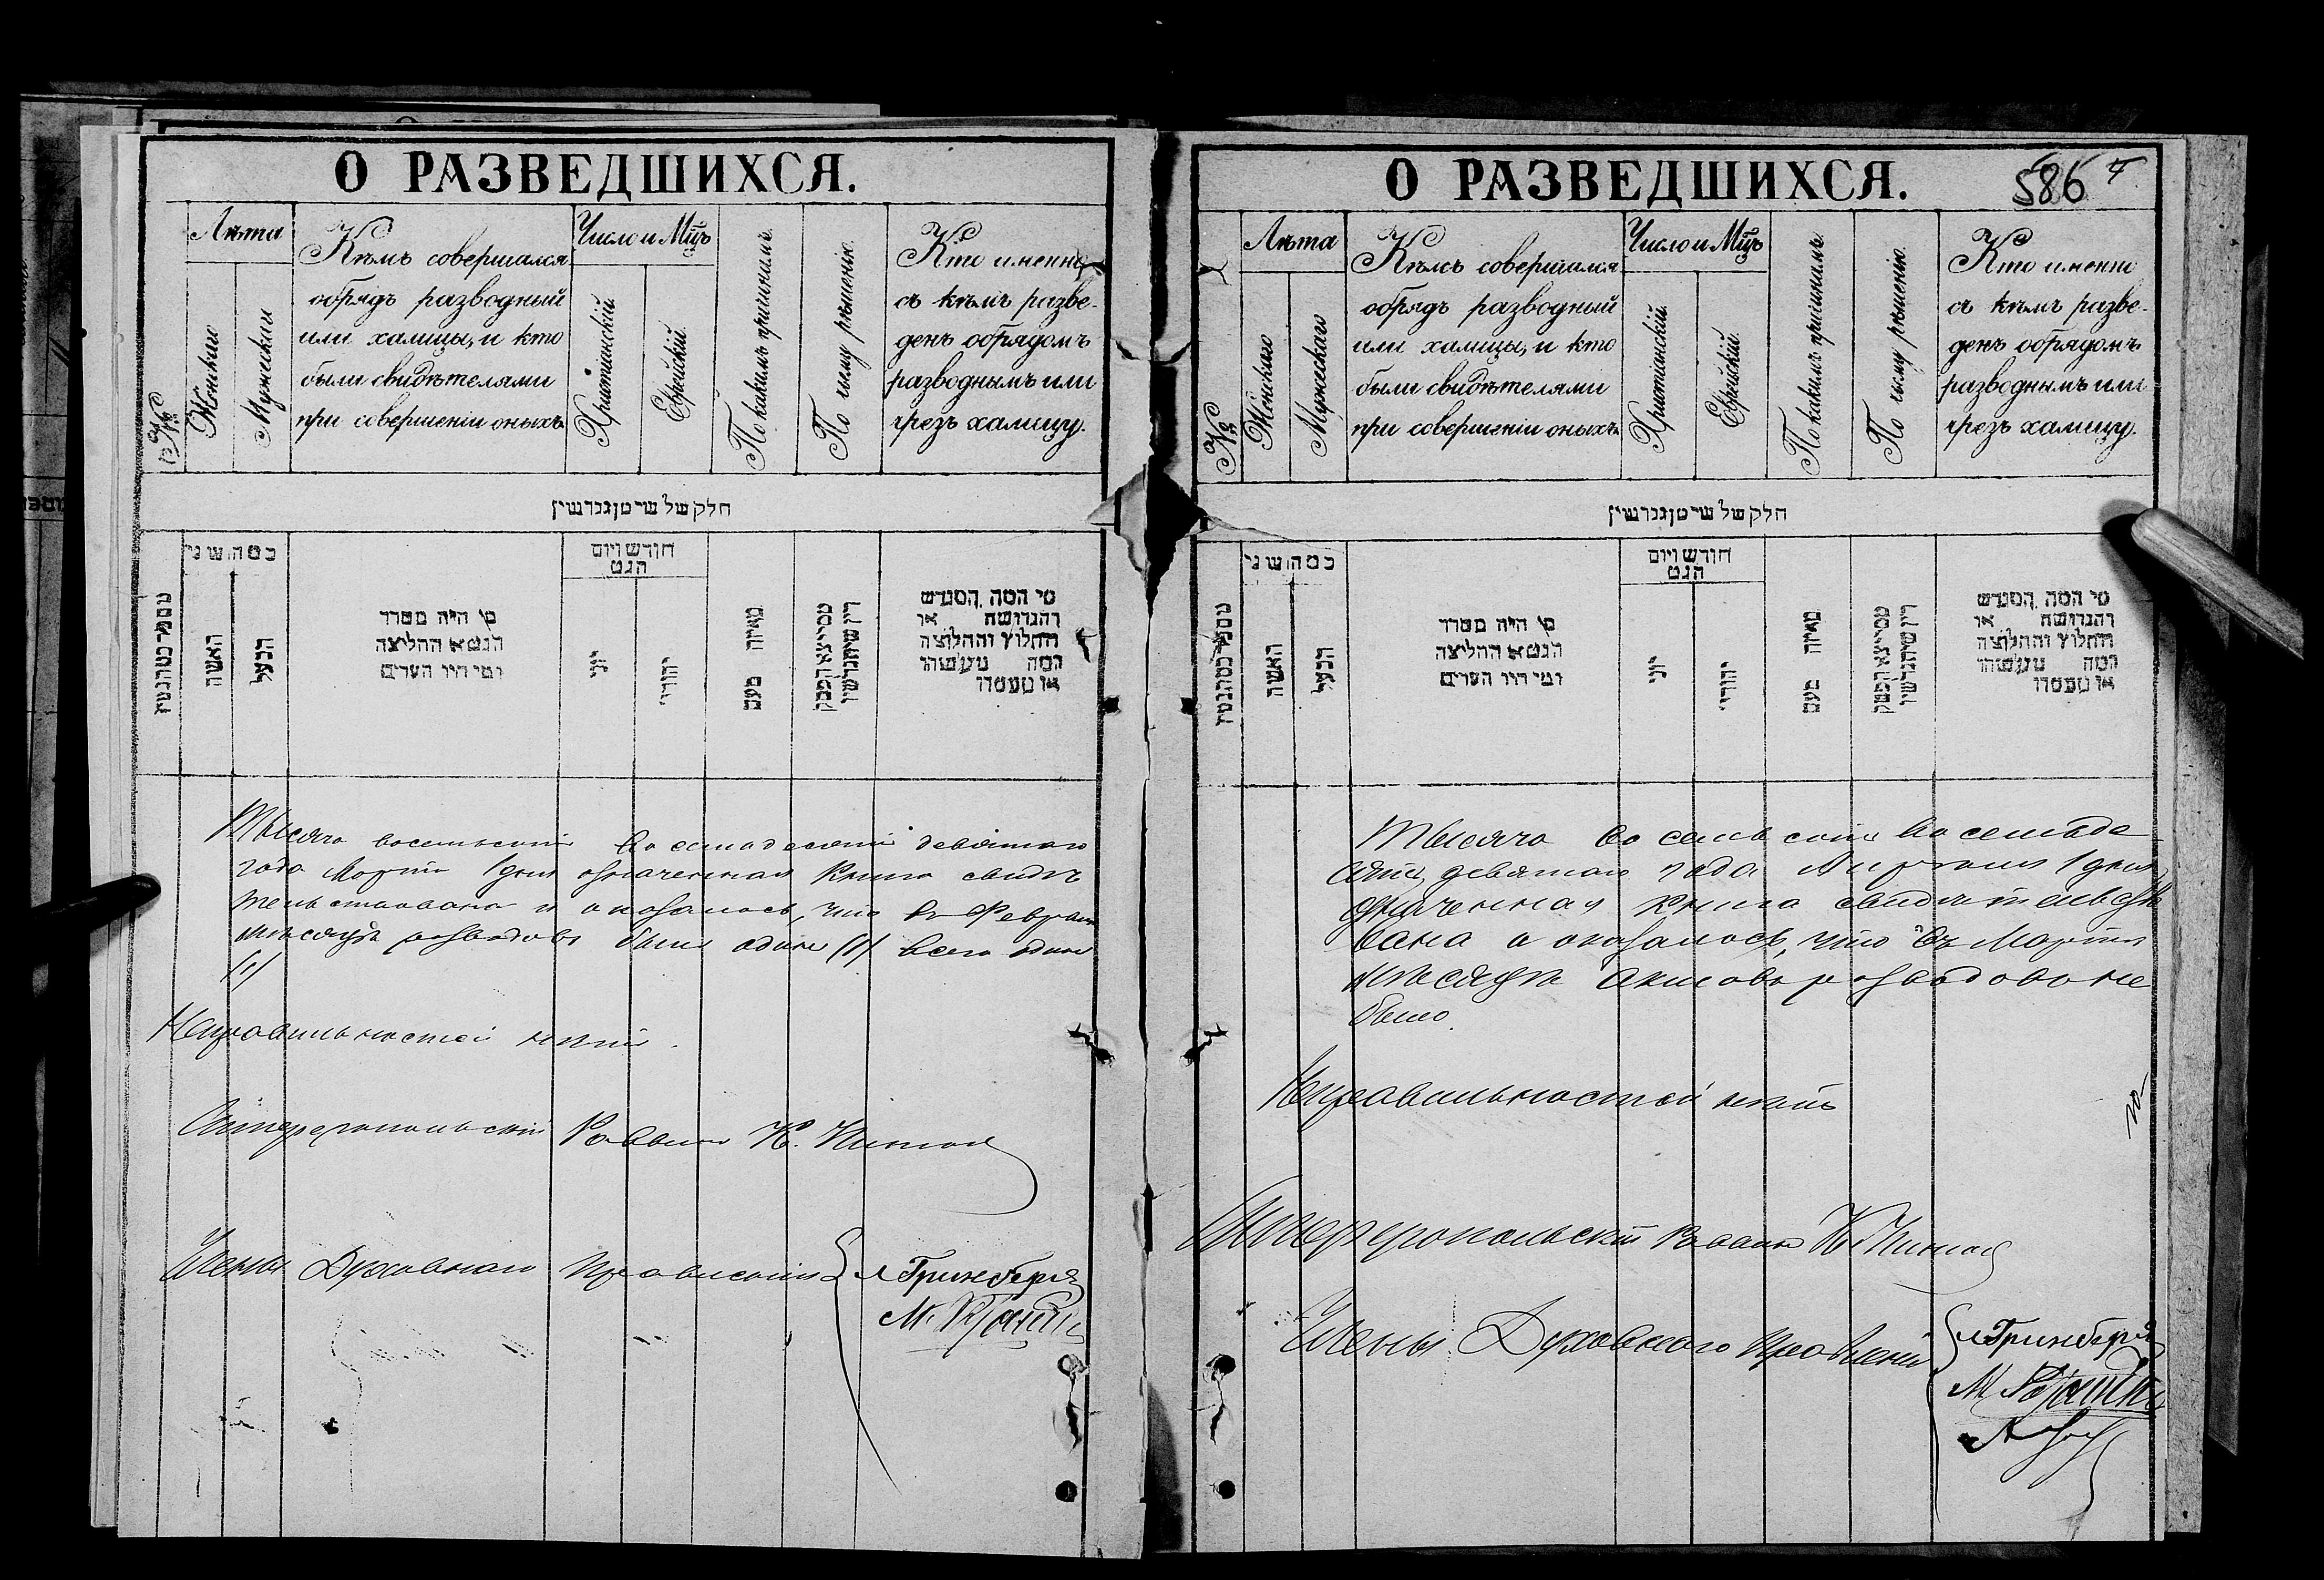 О РАЗВЕДШИХСЯ.
№
Лѣта
Женскаго
Мужескаго
Кѣмъ совершался
обрядъ разводный
или халицы, и кто
были свидѣтелями
при совершеніи оныхъ.
Число и Мц̃ъ
Христіанскій.
Еврейскій.
По какимъ причинамъ.
По чьему рѣшенію.
Кто именно
съ кѣмъ разве-
денъ обрядомъ
разводнымъ или
чрезъ халицу.
חלק של שרטן גנרשין
כמה שני
האשה
הבעל
מי היה מסדר
הגט או החליצה
ומי היו העדים
חודש ויום
הגט
יוני
יהודי
מאיזה טעם
מי המה המגרש
והגרושה או
החלוץ והחלוצה
המה
Тысяча восемьсотъ восемьдесятъ девятаго
года Марта 1 дня означенная книга свидѣ
тельствована и оказалось, что въ Февралѣ
мѣсяцѣ разводовъ былъ одинъ (1) всего одинъ
(1)
Неправильностей нѣтъ.
Симферопольскій Раввинъ К.
Члены Духовнаго Правленія
Л Гринбергъ
М.
О РАЗВЕДШИХСЯ.
586
№
Лѣта
Женскаго
Мужескаго
Кѣмъ совершался
обрядъ разводный
или халицы, и кто
были свидѣтелями
при совершеніи оныхъ.
Число и Мц̃ъ
Христіанскій.
Еврейскій.
По какимъ причинамъ.
По чьему рѣшенію.
Кто именно
съ кѣмъ разве-
денъ обрядомъ
разводнымъ или
чрезъ халицу.
חלק של שרטן גנרשין
כמה שני
האשה
הבעל
מי היה מסדר
הגט או החליצה
ומי היו העדים
חודש ויום
הגט
יוני
יהודי
מאיזה טעם
מי המה המגרש
והגרושה או
החלוץ והחלוצה
המה
Тысяча восемьсотъ восемьде
сятъ девятаго года Апрѣля 1 дня
означенная книга свидѣтельство
вана и оказалось, что въ Мартѣ
мѣсяцѣ актовъ разводовъ не
было.
Неправильностей нѣтъ
Симферопольскій Раввинъ К.
Члены Духовнаго Правленія
Л Гринбергъ
М